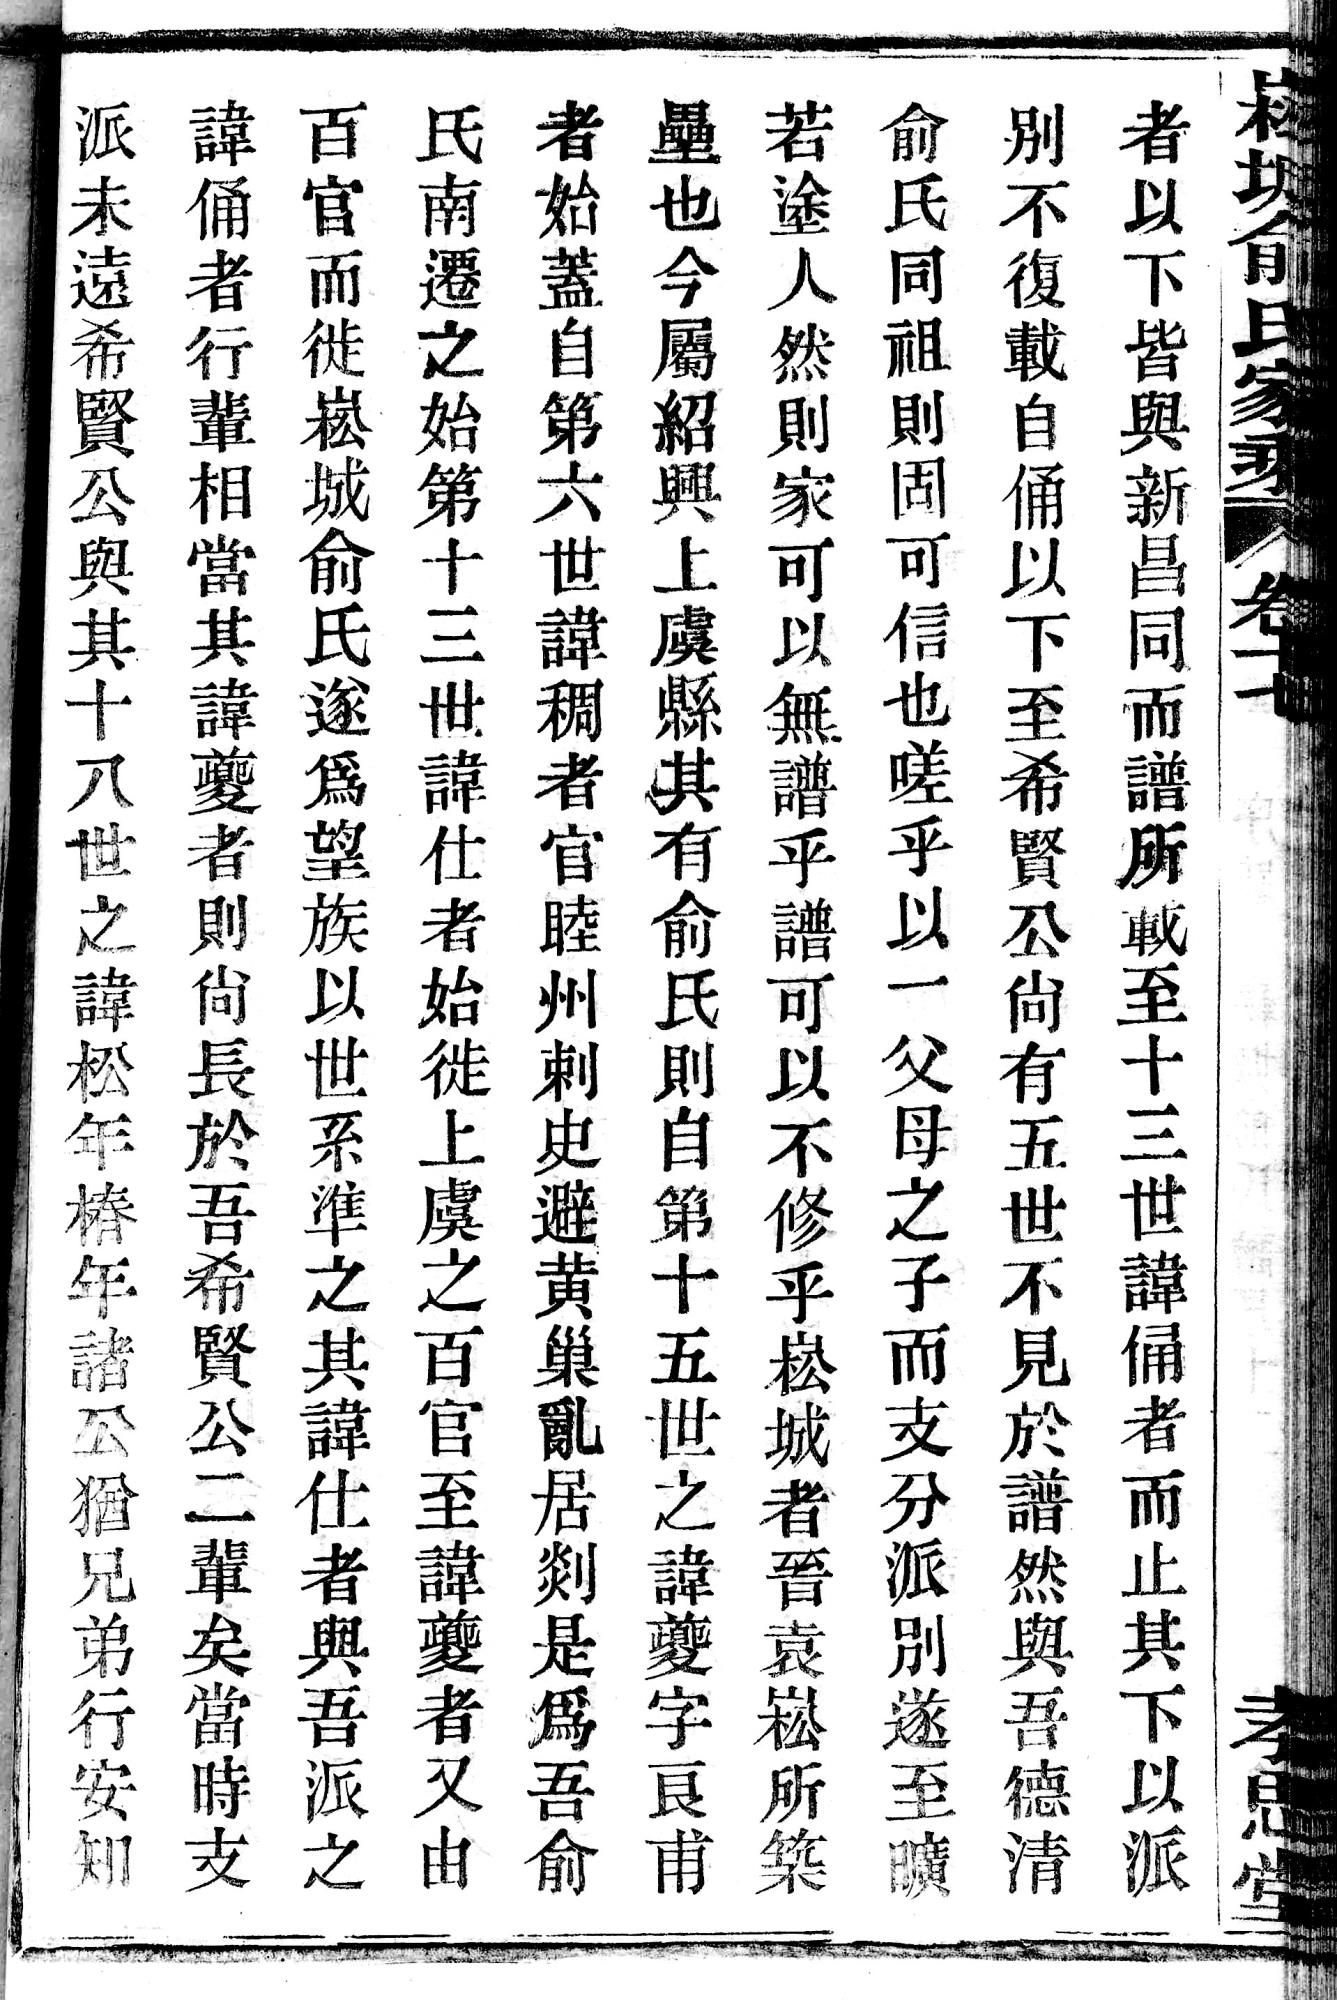 崧城俞氏家乘 卷十七 孝思堂
者以下皆與新昌同而譜所載至十三世諱俑者而止其下以派
別不復載自俑以下至希賢公尚有五世不見於譜然與吾德清
俞氏同祖則固可信也嗟乎以一父母之子而支分派別遂至曠
若塗人然則家可以無譜乎譜可以不修乎崧城者晉袁崧所築
壘也今屬紹興上虞縣其有俞氏則自第十五世之諱夔字良甫
者始蓋自第六世諱稠者官睦州刺史避黄巢亂居剡是爲吾俞
氏南遷之始第十三世諱仕者始徙上虞之百官至諱夔者又由
百官而徙崧城俞氏遂爲望族以世系準之其諱仕者與吾派之
諱俑者行輩相當其諱夔者則尚長於吾希賢公二輩矣當時支
派未遠希賢公與其十八世之諱松年椿年諸公猶兄弟行安知